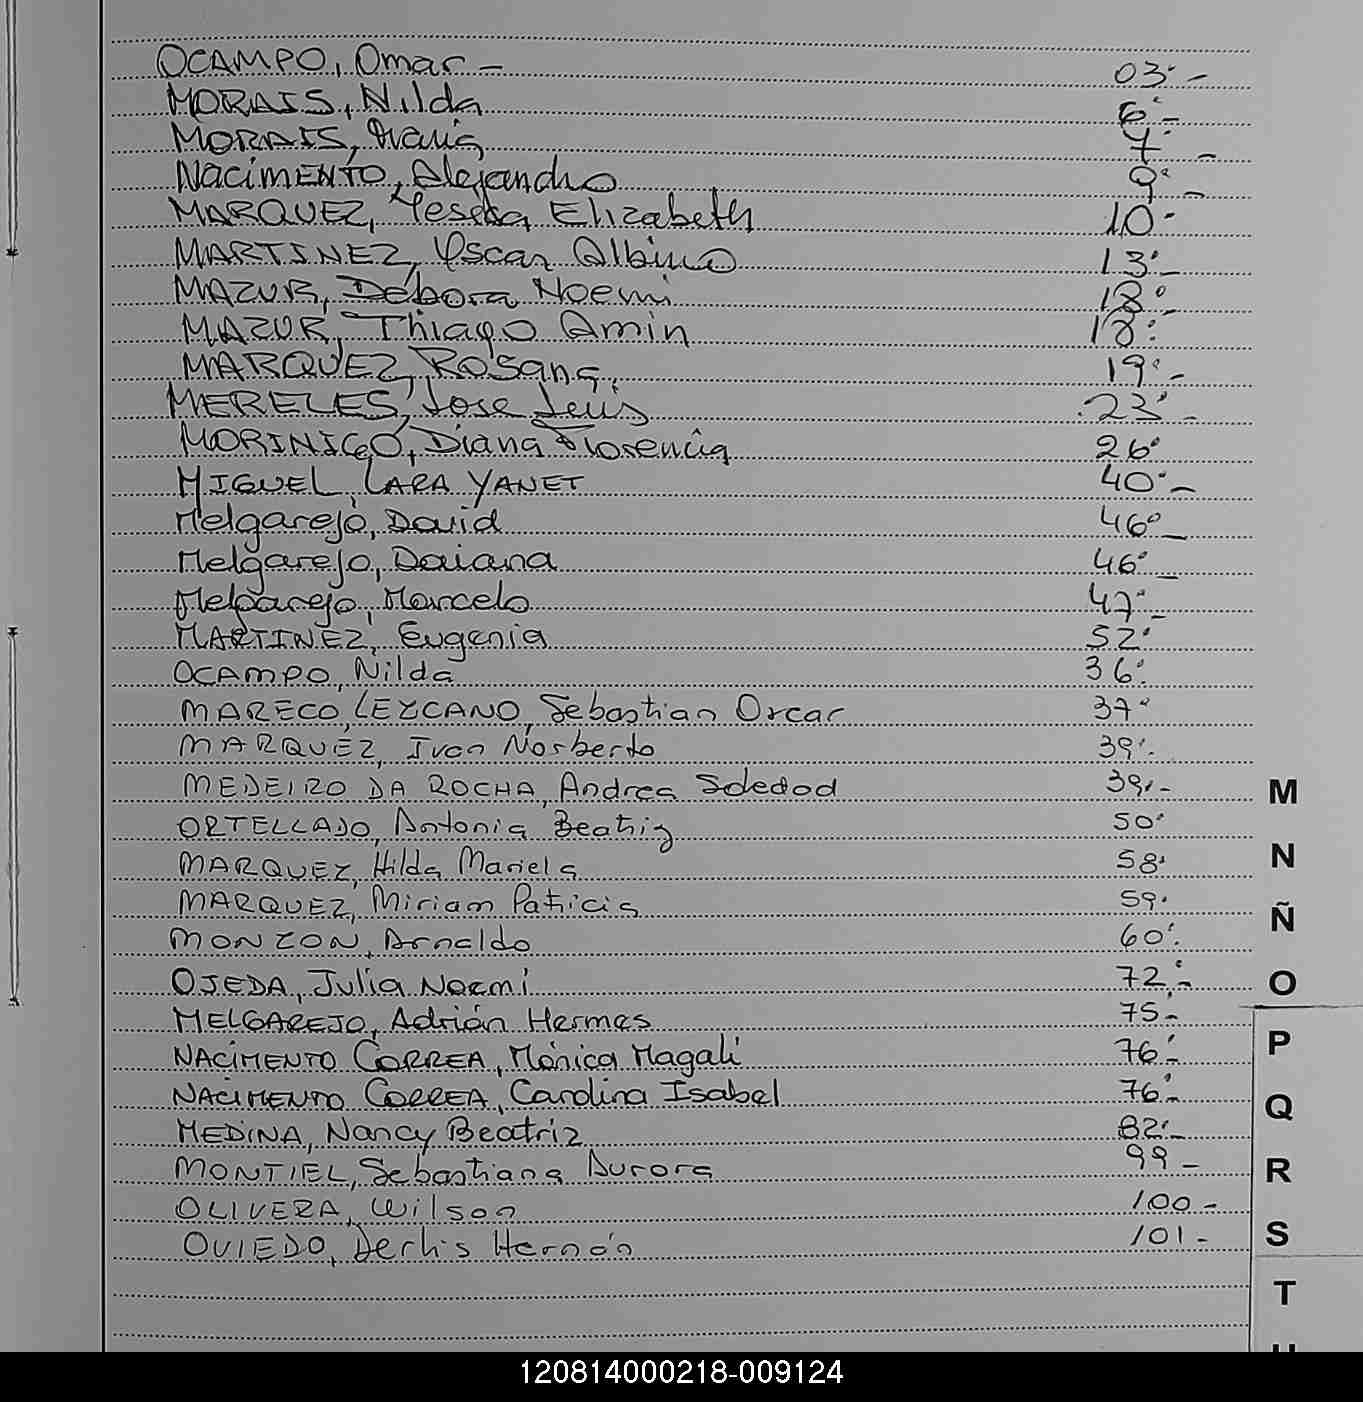 OCAMPO, Omar - 03:-
MORAIS, Nilda 6:-
MORAIS, Maria 7:-
Nacimento, Alejandro 9:-
MARQUEZ, Yesica Elizabeth 10:-
MARTINEZ, Oscar Albino 13:-
MAZUR, Debora Noemi 18:
MAZUR, Thiago Amin 18:
MARQUEZ, Rosana. 19:-
MERELES, Jose Luis 23:-
MORINIGO, Diana Florencia 26:
MIGUEL, LARA YANET 40:-
Melgarejo, David 46:-
Melgarejo, Daiana 46:-
Melgarejo, Marcelo 47:-
MARTINEZ, Eugenia 52:
OCAMPO, Nilda 36:
MARECO, LEZCANO, Sebastian Oscar 37:
MARQUEZ, Ivan Norberto 39:-
MEDEIRO DA ROCHA, Andrea Soledad 39:-
ORTELLADO, Antonia Beatriz 50:
MARQUEZ, Hilda Mariela 58:
MARQUEZ, Miriam Patricia 59.
MONZON, Arnaldo 60:
OJEDA, Julia Noemi 72:-
MELGAREJO, Adrián Hermes 75-
NACIMENTO CORREA, Mónica Magali 76:-
NACIMENTO CORREA, Carolina Isabel 76:-
MEDINA, Nancy Beatriz 82:-
MONTIEL, Sebastiana Aurora 99-
OLIVERA, Wilson 100-
OVIEDO, Derlis Hernán 101-
M
N
Ñ
O
P
Q
R
S
T
120814000218-009124